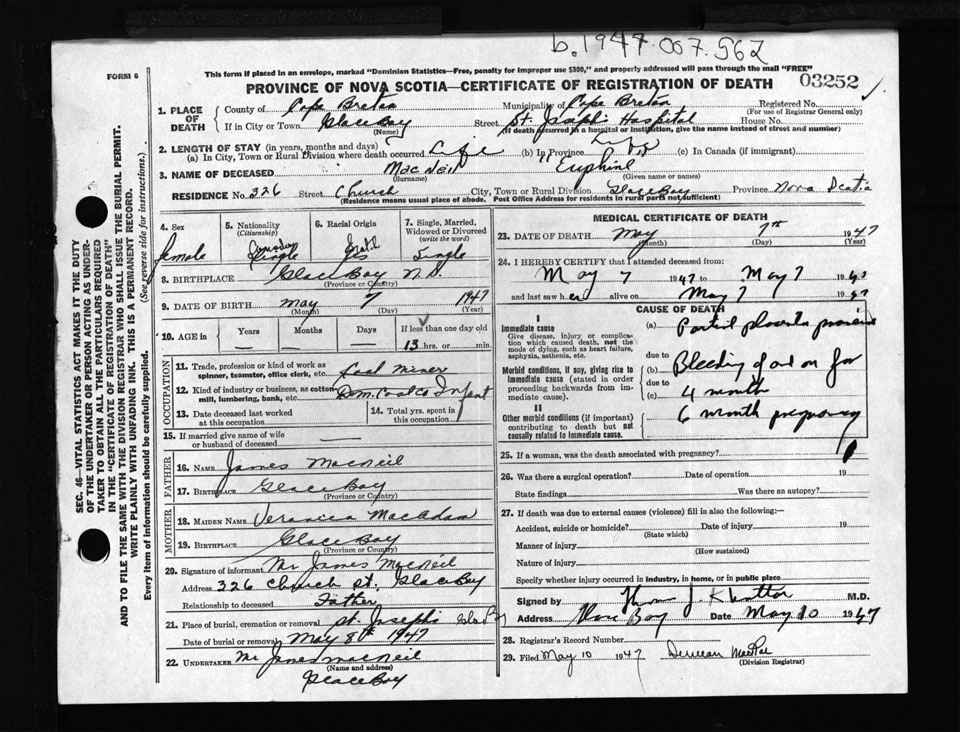 b.1947.007.562
FORM 6
This form if placed in an envelope, marked "Dominion Statistics—Free, penalty for improper use $300," and properly addressed will pass through the mail "FREE"
PROVINCE OF NOVA SCOTIA—CERTIFICATE OF REGISTRATION OF DEATH
03252
1. PLACE OF DEATH
County of Cape Breton Municipality of Cape Breton Registered No.
(For use of Registrar General only)
If in City or Town Glace Bay Street St. Joseph's Hospital House No.
(Name) (If death occurred in a hospital or institution, give the name instead of street and number)
2. LENGTH OF STAY (in years, months and days)
(a) In City, Town or Rural Division where death occurred Life (b) In Province Life (c) In Canada (if immigrant)
3. NAME OF DECEASED MacNeil
(Surname) (Given name or names)
RESIDENCE No. 326 Street Church City, Town or Rural Division Glace Bay Province Nova Scotia
(Residence means usual place of abode. Post Office Address for residents in rural parts not sufficient)
4. Sex
female
5. Nationality
(Citizenship)
6. Racial Origin
7. Single, Married, Widowed or Divorced
(write the word)
Single
8. BIRTHPLACE Glace Bay N.S.
(Province or Country)
9. DATE OF BIRTH May 7 1947
(Month) (Day) (Year)
10. AGE in Years Months Days If less than one day old
13 hrs. or min.
OCCUPATION
11. Trade, profession or kind of work as spinner, teamster, office clerk, etc. Coal Miner
12. Kind of industry or business, as cotton mill, lumbering, bank, etc. Dom. Coal Co Infant
13. Date deceased last worked at this occupation
14. Total yrs. spent in this occupation
15. If married give name of wife or husband of deceased
FATHER
16. NAME James MacNeil
17. BIRTHPLACE Glace Bay
(Province or Country)
MOTHER
18. MAIDEN NAME Veronica MacAdam
19. BIRTHPLACE Glace Bay
(Province or Country)
20. Signature of informant Mr James MacNeil
Address 326 Church St. Glace Bay
Relationship to deceased Father
21. Place of burial, cremation or removal St. Josephs Gla B
Date of burial or removal May 8th 1947
22. UNDERTAKER Mr James MacNeil
(Name and address)
Glace Bay
MEDICAL CERTIFICATE OF DEATH
23. DATE OF DEATH May 7th 1947
(Month) (Day) (Year)
24. I HEREBY CERTIFY that I attended deceased from:
May 7 1947 to May 7 1947
and last saw her alive on May 7 1947
CAUSE OF DEATH
I
Immediate cause
Give disease, injury or complication which caused death, not the mode of dying, such as heart failure, asphyxia, asthenia, etc.
(a) Partial placenta
due to
Morbid conditions, if any, giving rise to immediate cause (stated in order proceeding backwards from immediate cause).
(b) Bleeding off and on for
due to
(c) 4 month
II
Other morbid conditions (if important) contributing to death but not causally related to immediate cause.
6 month pregnancy
25. If a woman, was the death associated with pregnancy?
26. Was there a surgical operation? Date of operation 19
State findings Was there an autopsy?
27. If death was due to external causes (violence) fill in also the following:—
Accident, suicide or homicide? Date of injury 19
(State which)
Manner of injury
(How sustained)
Nature of injury
Specify whether injury occurred in industry, in home, or in public place
Signed by M.D.
Address Date May 10 1947
28. Registrar's Record Number
29. Filed May 10 1947 Duncan MacRae
(Division Registrar)
SEC. 46—VITAL STATISTICS ACT MAKES IT THE DUTY
OF THE UNDERTAKER OR PERSON ACTING AS UNDER-
TAKER TO OBTAIN ALL THE PARTICULARS REQUIRED
IN THE "CERTIFICATE OF REGISTRATION OF DEATH"
AND TO FILE THE SAME WITH THE DIVISION REGISTRAR WHO SHALL ISSUE THE BURIAL PERMIT.
WRITE PLAINLY WITH UNFADING INK. THIS IS A PERMANENT RECORD.
Every item of information should be carefully supplied. (See reverse side for instructions.)